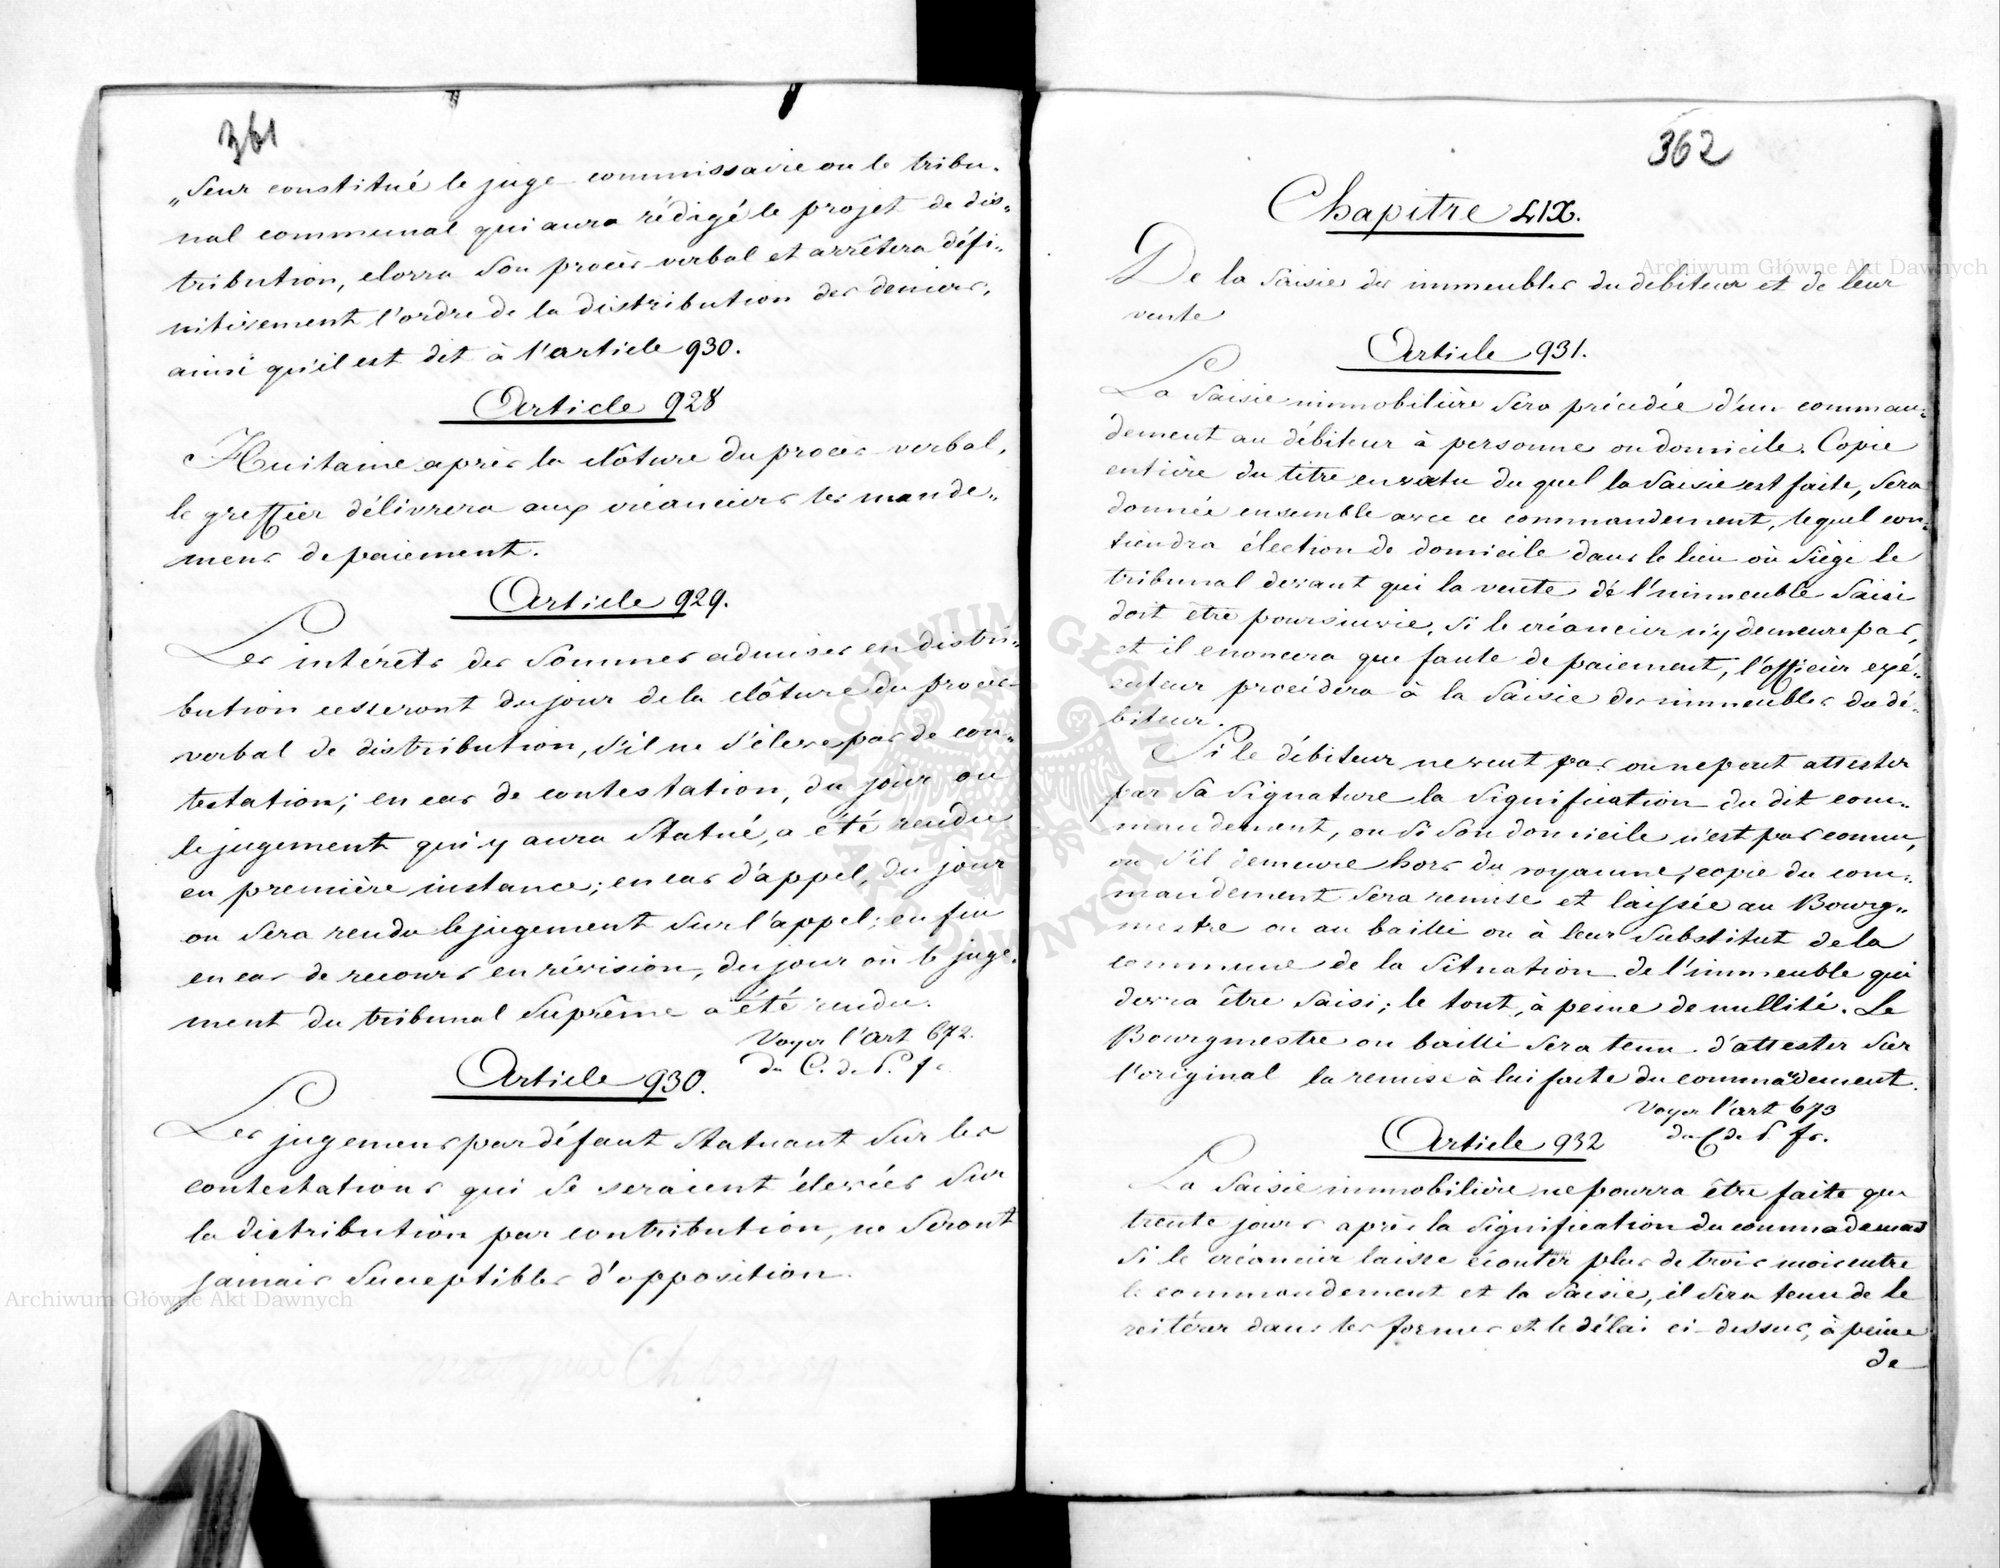 361
„seur constitué le juge commissaire ou le tribu„
nal communal qui aura rédigé le projet de dis„
tribution, clorra son procès verbal et arrêtera défi„
nitivement l'ordre de la distribution des deniers,
ainsi qu'il est dit à l'article 930.
Article 928
Huitaine après la clôture du procès verbal,
le greffier délivrera aux créanciers les mande„
mens de paiement.
Article 929.
Les intérêts des sommes admises en distri„
bution cesseront du jour de la clôture du procès
verbal de distribution, s'il ne s'éleve pas de con„
testation; en cas de contestation, du jour ou
le jugement qui y aura statué, a été rendu
en première instance; en cas d'appel, du jour
ou sera rendu le jugement sur l'appel; en fin
en cas de recours en révision, du jour où le juge„
ment du tribunal Suprême a été rendu.
Voyez l'art 672.
du C. de P. f.
Article 930.
Les jugemens par défaut statuant sur les
contestations qui se seraient élevées sur
la distribution par contribution, ne seront
jamais susceptibles d'opposition.
362
Chapitre LIX.
De la Saisie des immeubles du débiteur et de leur
vente
Article 931.
La Saisie immobilière sera précédée d'un comman„
dement au débiteur à personne ou domicile. Copie
entière du titre en vertu du quel la Saisie est faite, sera
donnée ensemble avec ce commandement, lequel con„
tiendra élection de domicile dans le lieu où siège le
tribunal devant qui la vente de l'immeuble saisi
doit être poursuivie, si le créancier n'y demeure pas,
et il enoncera que faute de paiement, l'officier exé„
cuteur procédera à la Saisie des immeubles du dé„
biteur.
Si le débiteur ne veut pas ou ne peut attester
par sa signature la signification du dit com„
mandement, ou si son domicile n'est pas connu,
ou s'il demeure hors du royaume, copie du com„
mandement sera remise et laissée au Bourg„
mestre ou au bailli ou à leur substitut de la
commune de la situation de l'immeuble qui
devra être saisi; le tout, à peine de nullité. Le
Bourgmestre ou bailli sera tenu d'attester sur
l'original la remise à lui faite du commandement.
Voyez l'art 673
du C de P. fr.
Article 932
La Saisie immobilière ne pourra être faite que
trente jours après la signification du commademend
si le créancier laisse écouter plus de trois mois entre
le commandement et la Saisie, il sera tenu de le
reitérer dans les formes et le délai ci-dessus, à peine
de
Archiwum Główne Akt Dawnych
Archiwum Główne Akt Dawnych
ARCHIWUM GŁÓWNE AKT DAWNYCH